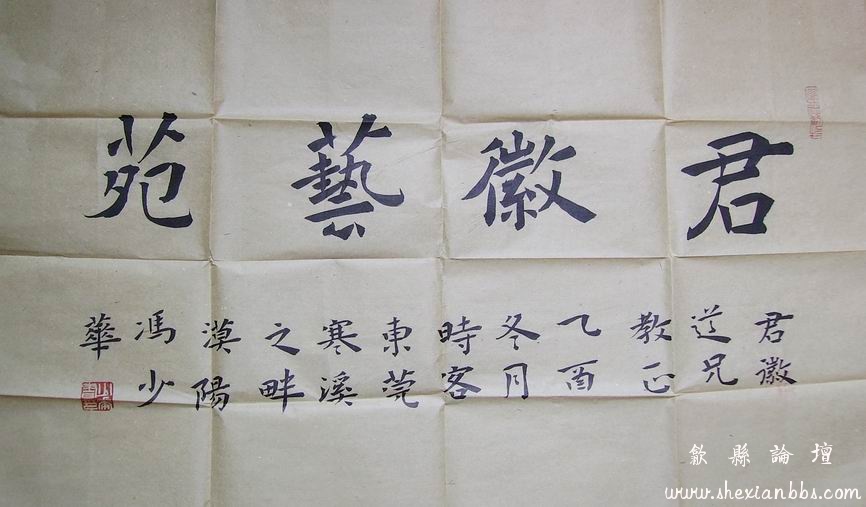 君徽藝苑
君徽
道兄
教正
乙酉
冬月
時客
東莞
寒溪
之畔
漠陽
馮少
華
歙縣論壇
www.shexianbbs.com